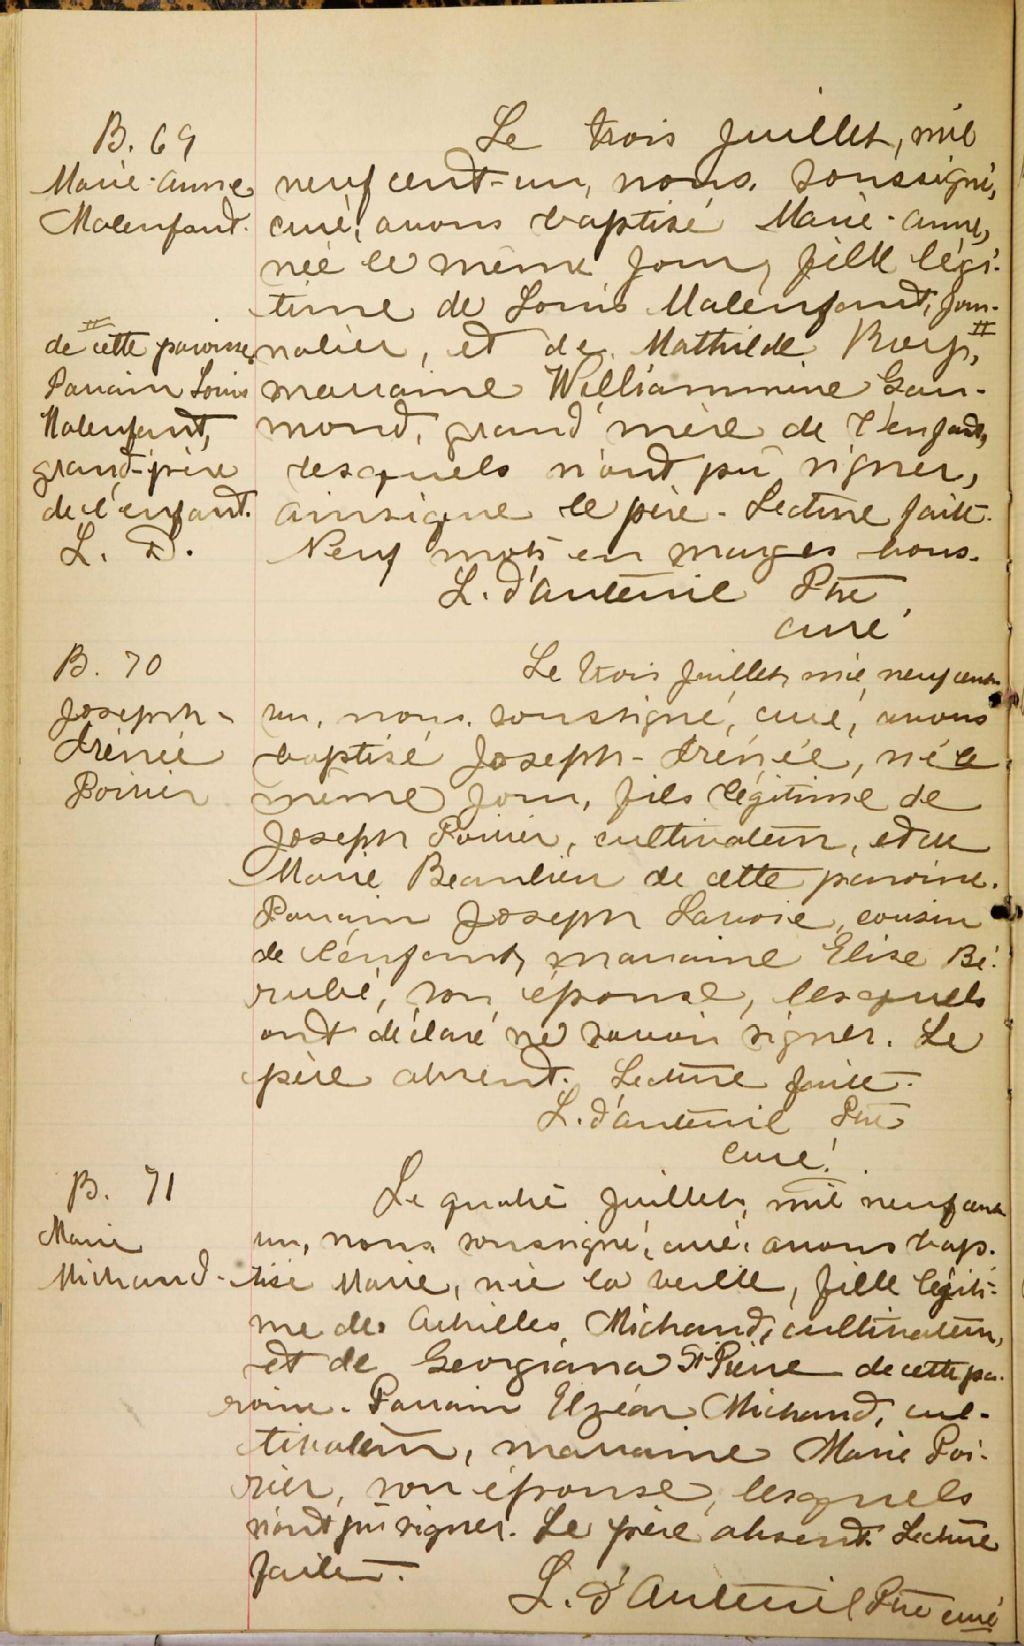 B. 69
Marie-Anne
Malenfant.
Le trois juillet, mil
neuf cent-un, nous, soussigné,
curé, avons baptisé Marie-Anne,
née le même jour, fille légi-
time de Louis Malenfant, jour-
nalier, et de Mathilde #
marraine Williammine Gau-
mond, grand'mère de l'enfant,
lesquels n'ont pu signer,
ainsique le père. Lecture faite.
Neuf mots en marges bons.
L. d'Auteuil Ptre
curé
#
de cette paroisse
Parrain Louis
Malenfant,
grand-père
de l'enfant.
L. D.
B. 70
Joseph-
Irénée
Poirier
Le trois juillet, mil neuf cent
un, nous, soussigné, curé, avons
baptisé Joseph-Irénée, né le
même jour, fils légitime de
Joseph Poirier, cultivateur, et de
Marie Beaulieu de cette paroisse.
Parrain Joseph Lavoie, cousin
de l'enfant, marraine Elise Bé-
rubé, son épouse, lesquels
ont déclaré ne savoir signer. Le
père absent. Lecture faite.
L. d'Auteuil Ptre
curé.
B. 71
Marie
Michaud.
Le quatre juillet, mil neuf cent
un, nous, soussigné, curé, avons bap-
tisé Marie, née la veille, fille légiti-
me de Achilles Michaud, cultivateur,
et de Georgiana St-Pierre de cette pa-
roisse. Parrain Elzéar Michaud, cul-
tivateur, marraine Marie Poi-
rier, son épouse, lesquels
n'ont pu signer. Le père absent. Lecture
faite.
L. d'Auteuil Ptre curé